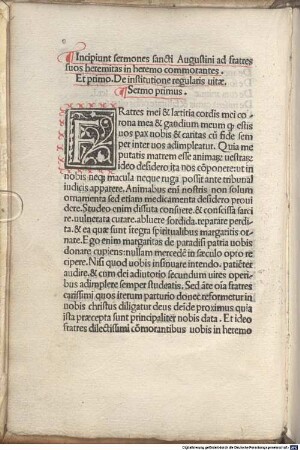 Incipiunt sermones sancti Augustini ad fratres
suos heremitas in heremo commorantes.
Et primo. De institutione regularis uitæ.
Sermo primus.
FRatres mei & lætitia cordis mei co
rona mea & gaudium meum q estis
uos pax nobis & caritas cũ fide sem
per inter uos adimpleatur. Quia me
putatis matrem esse animæ uestræ:
ideo desidero ita nos cõponere: ut in
nobis neq macula neque ruga possit ante tribunal
iudicis apparere. Animabus eni nostris non solum
ornamenta sed etiam medicamenta desidero proui
dere. Studeo enim dissuta consuere. & conscissa sarci
re. uulnerata curare. abluere sordida. reparare perdi
ta. & ea quæ sunt itegra spiritualibus margaritis or
nare. Ego enim margaritas de paradisi patria uobis
donare cupiens: nullam mercedẽ in sæculo opto re
cipere. Nisi quod uobis insinuare intendo. patiẽter
audire. & cum dei adiutorio secundum uires operi
bus adimplere semper studeatis. Sed ãte oĩa fratres
carissimi quos iterum parturio donec reformetur in
nobis christus diligatur deus deĩde proximus quia
ista præcepta sunt principaliter nobis data. Et ideo
fratres dilectissimi cõmorantibus uobis in heremo